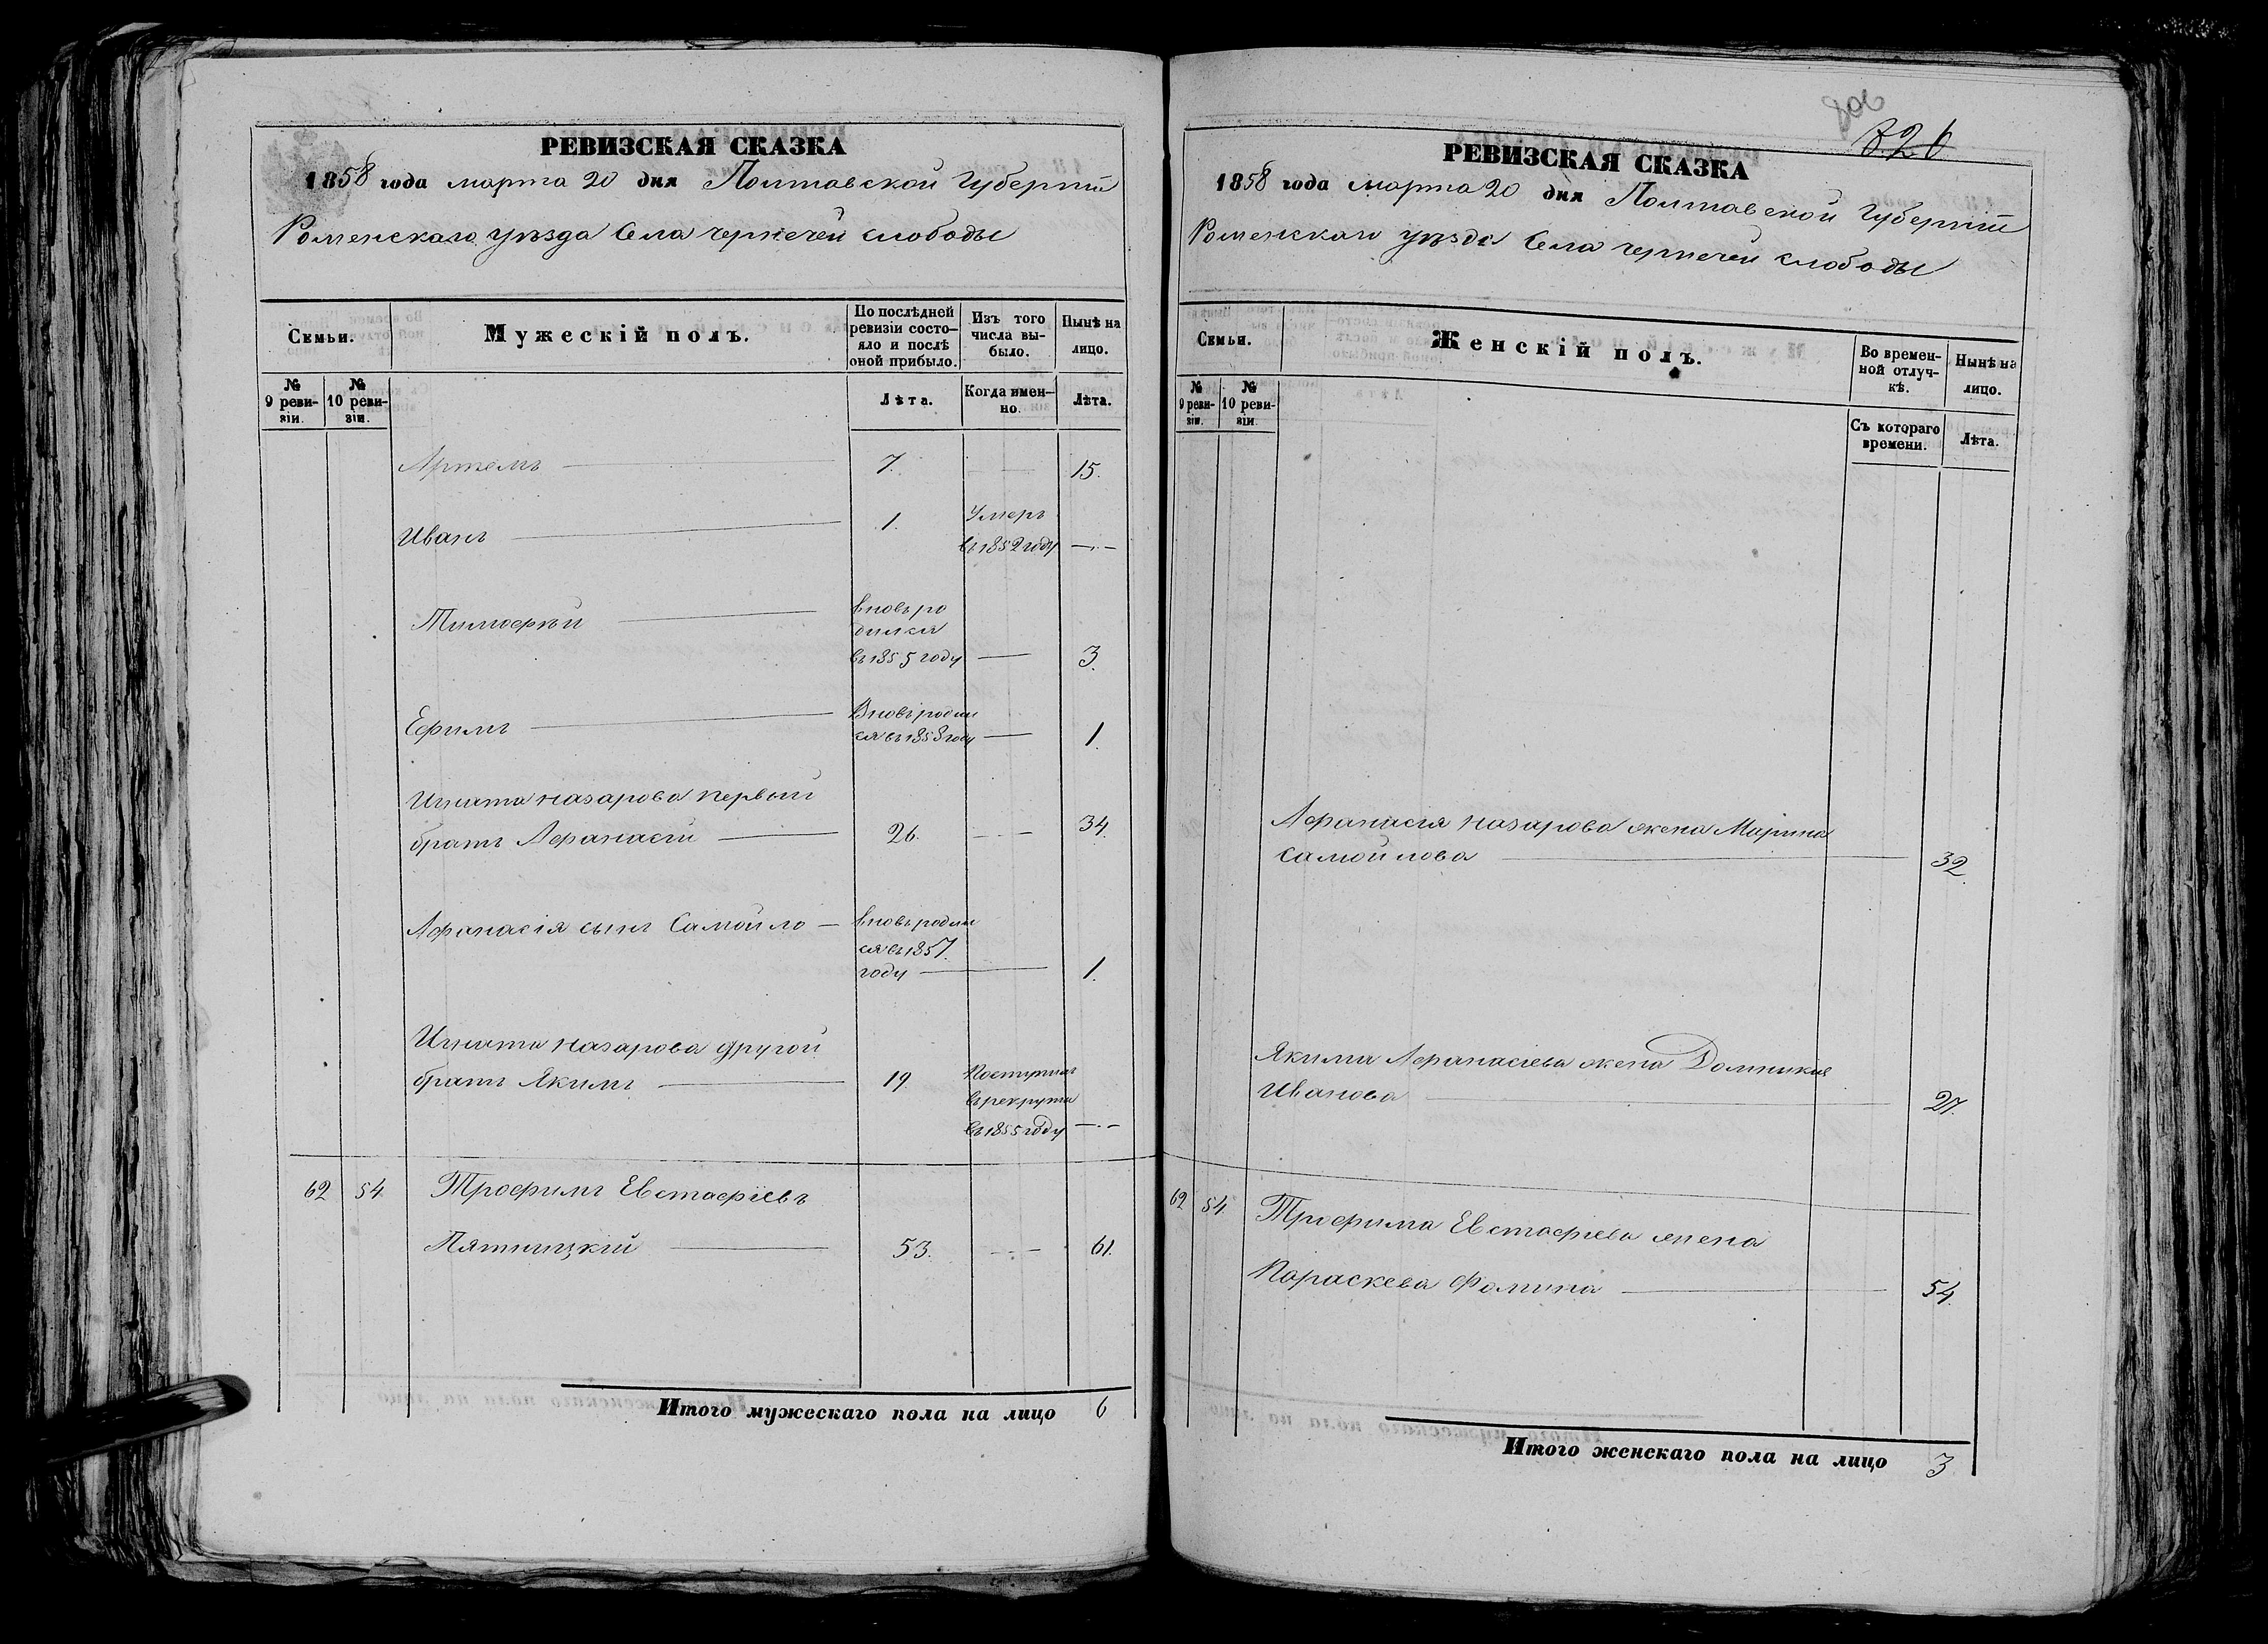 РЕВИЗСКАЯ СКАЗКА
1858 года марта 20 дня Полтавской Губернiи
Роменскаго уѣзда Села чернечей слободы
Семьи.
Мужескій полъ.
По послѣдней ревизіи состояло и послѣ оной прибыло.
Изъ того числа выбыло.
Нынѣ на лицо.
№ 9 ревизіи.
№ 10 ревизіи.
Лѣта.
Когда именно.
Лѣта.
Артемъ 7. 15.
Иванъ 1. Умеръ
въ 1852 году
Тимофѣй вновь ро
дился
въ 1855 году 3.
Ефимъ Вновь родил
ся въ 1858 году 1.
Игната назарова первый
братъ Афанасій 26. 34.
Афанасія сынъ Самойло вновь родил
ся въ 1857.
году 1.
Игната назарова другой
братъ Якимъ 19 Поступилъ
въ рекрута
въ 1855 году
62 54 Трофимъ Евстафіевъ
Пятницкій 53. 61.
Итого мужескаго пола на лицо 6
806
826
РЕВИЗСКАЯ СКАЗКА
1858 года марта 20 дня Полтавской Губерніи
Роменскаго уѣзда Села чернечей слободы
Семьи.
Женскій полъ.
Во временной отлучкѣ.
Нынѣ на лицо.
№ 9 ревизіи.
№ 10 ревизіи.
Съ котораго времени.
Лѣта.
Афанасія назарова жена Марина
Самойлова 32.
Якима Афанасіева жена Домникія
Иванова 27.
62 54 Трофима Евстафіева жена
Параскева Фомина 54.
Итого женскаго пола на лицо 3